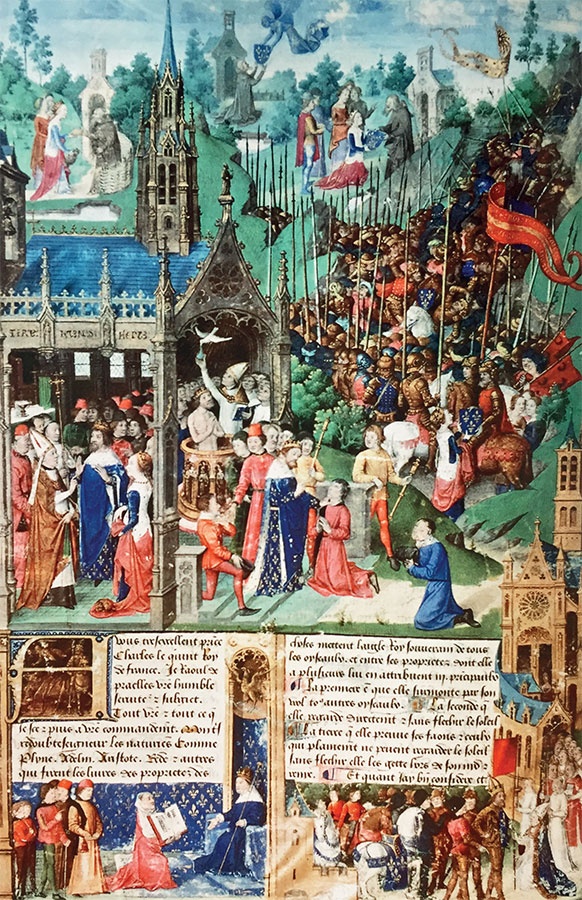 vous tresexcellent price
Charles le quint Roy
de france. Je Raoul de
praelles vre humble
seruite & subget.
Tout vre & tout ce q
ie sce & puis a vre commandemt.
redoubte seigneur les natures Comme
Plyne. Adelm. Aristote. Bede & autres
qui firent les liures des proprietez des
choses mettent laigle Roy souuerain de tous
les oyseaulx. et entre ses proprietez dont elle
a plusieurs luy en attribuent iij. pricipaulx
La premiere e que elle surmonte par son
vol to9 autres oyseaulx. La seconde q
elle regarde & sans flechir le soleil
La tierce q elle preuue ses faons & ceulx
qui plainemt ne peuent regarder le soleil
sans flechir elle les gette hors de son nid &
renye. Et quant iay bn considere et